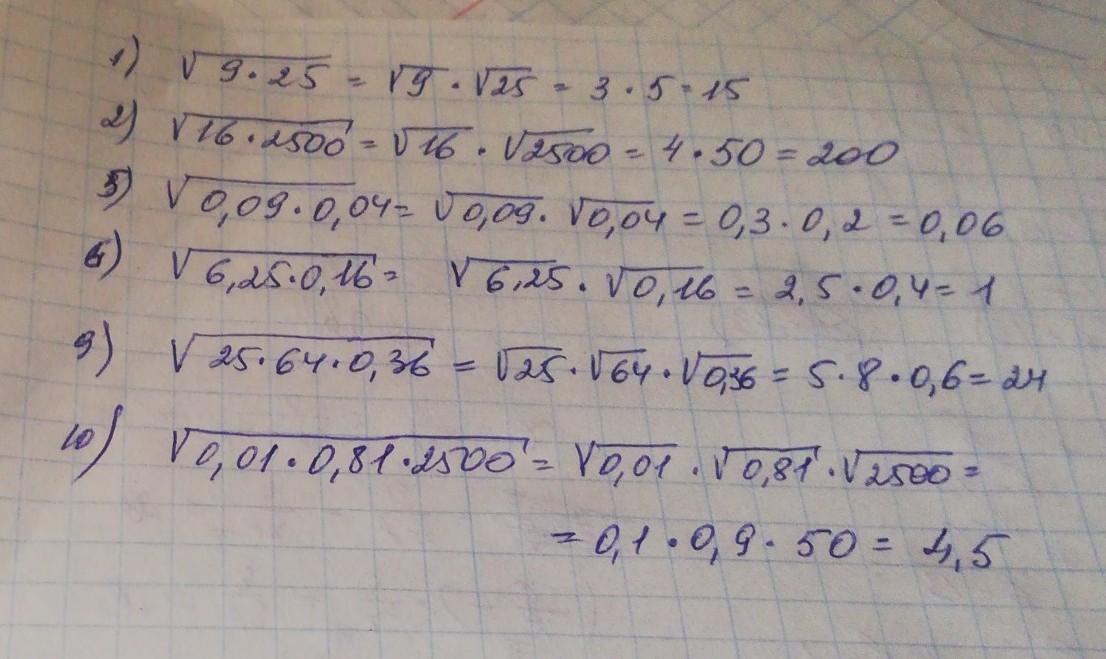 1) √9·25 = √9 · √25 = 3 · 5 = 15
2) √16·2500 = √16 · √2500 = 4·50 = 200
5) √0,09·0,04 = √0,09 · √0,04 = 0,3·0,2 = 0,06
6) √6,25·0,16 = √6,25 · √0,16 = 2,5·0,4 = 1
9) √25·64·0,36 = √25·√64·√0,36 = 5·8·0,6 = 24
10) √0,01·0,81·2500 = √0,01 · √0,81 · √2500 =
= 0,1·0,9·50 = 4,5